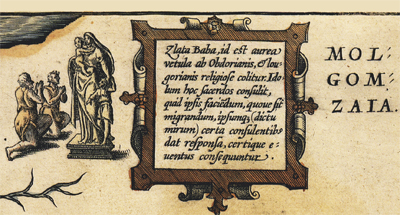 Zlata Baba, id est aurea
vetula ab Obdorianis, & Iou-
gorianis religiose colitur. Ido-
lum hoc sacerdos consulit,
quid ipsis faciēdum, quove sit
migrandum, ipsumq; (dictu
mirum) certa consulentib9
dat responsa, certique e-
ventus consequuntur.
MOL-
GOM-
ZAIA.